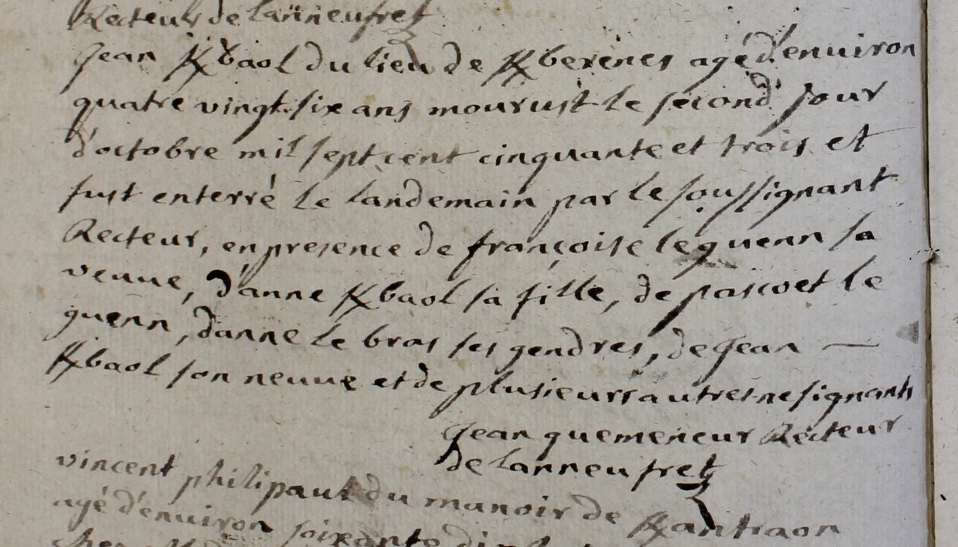 Recteur de Lanneufret
Jean K̸baol du lieu de K̸berenes agé d'enuiron
quatre vingt six ans mourust le second jour
d'octobre mil sept cent cinquante et trois et
fust enterré le landemain par le soussignant
Recteur, en presence de françoise le quenn sa
veuue, d'anne K̸baol sa fille, de pascoet le
guenn, danne le bras ses gendres, de jean —
K̸baol son neuue et de plusieurs autres ne signants
Jean quemeneur Recteur
de lanneufret
vincent philipaut du manoir de K̸antraon
agé d'enuiron soixante